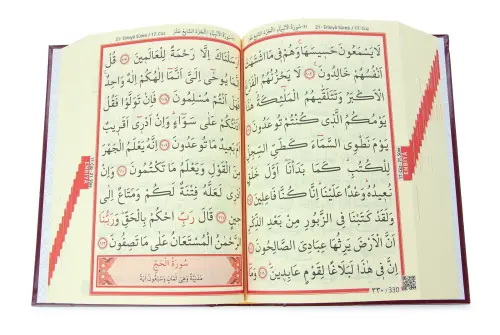 ٢١-سورة الأنبياء
21- Enbiyâ Sûresi / 17. Cüz
لَا يَسْمَعُونَ حَسِيسَهَا وَهُمْ فِي مَا اشْتَهَتْ
أَنْفُسُهُمْ خَالِدُونَ ﴿١٠٢﴾ لَا يَحْزُنُهُمُ الْفَزَعُ
الْأَكْبَرُ وَتَتَلَقّٰيهُمُ الْمَلٰئِكَةُ هٰذَا
يَوْمُكُمُ الَّذِي كُنْتُمْ تُوعَدُونَ ﴿١٠٣﴾
يَوْمَ نَطْوِي السَّمَاءَ كَطَيِّ السِّجِلِّ
لِلْكُتُبِ كَمَا بَدَأْنَا أَوَّلَ خَلْقٍ
نُعِيدُهُ وَعْدًا عَلَيْنَا إِنَّا كُنَّا فَاعِلِينَ ﴿١٠٤﴾
وَلَقَدْ كَتَبْنَا فِي الزَّبُورِ مِنْ بَعْدِ الذِّكْرِ
أَنَّ الْأَرْضَ يَرِثُهَا عِبَادِيَ الصَّالِحُونَ ﴿١٠٥﴾
إِنَّ فِي هٰذَا لَبَلَاغًا لِقَوْمٍ عَابِدِينَ ﴿١٠٦﴾
٣٣٠ / 330
21- Enbiyâ Sûresi / 17. Cüz
٢١-سورة الأنبياء / الجزء السابع عشر
أَرْسَلْنَاكَ إِلَّا رَحْمَةً لِلْعَالَمِينَ ﴿١٠٧﴾ قُلْ
إِنَّمَا يُوحٰى إِلَيَّ أَنَّمَا إِلٰهُكُمْ إِلٰهٌ وَاحِدٌ
فَهَلْ أَنْتُمْ مُسْلِمُونَ ﴿١٠٨﴾ فَإِنْ تَوَلَّوْا فَقُلْ
اٰذَنْتُكُمْ عَلٰى سَوَاءٍ وَإِنْ أَدْرِي أَقَرِيبٌ
أَمْ بَعِيدٌ مَا تُوعَدُونَ ﴿١٠٩﴾ إِنَّهُ يَعْلَمُ الْجَهْرَ
مِنَ الْقَوْلِ وَيَعْلَمُ مَا تَكْتُمُونَ ﴿١١٠﴾ وَإِنْ
أَدْرِي لَعَلَّهُ فِتْنَةٌ لَكُمْ وَمَتَاعٌ إِلٰى
حِينٍ ﴿١١١﴾ قَالَ رَبِّ احْكُمْ بِالْحَقِّ وَرَبُّنَا
الرَّحْمٰنُ الْمُسْتَعَانُ عَلٰى مَا تَصِفُونَ ﴿١١٢﴾
سُورَةُ الْحَجِّ
مَدَنِيَّةٌ وَهِيَ ثَمَانٍ وَسَبْعُونَ اٰيَةً